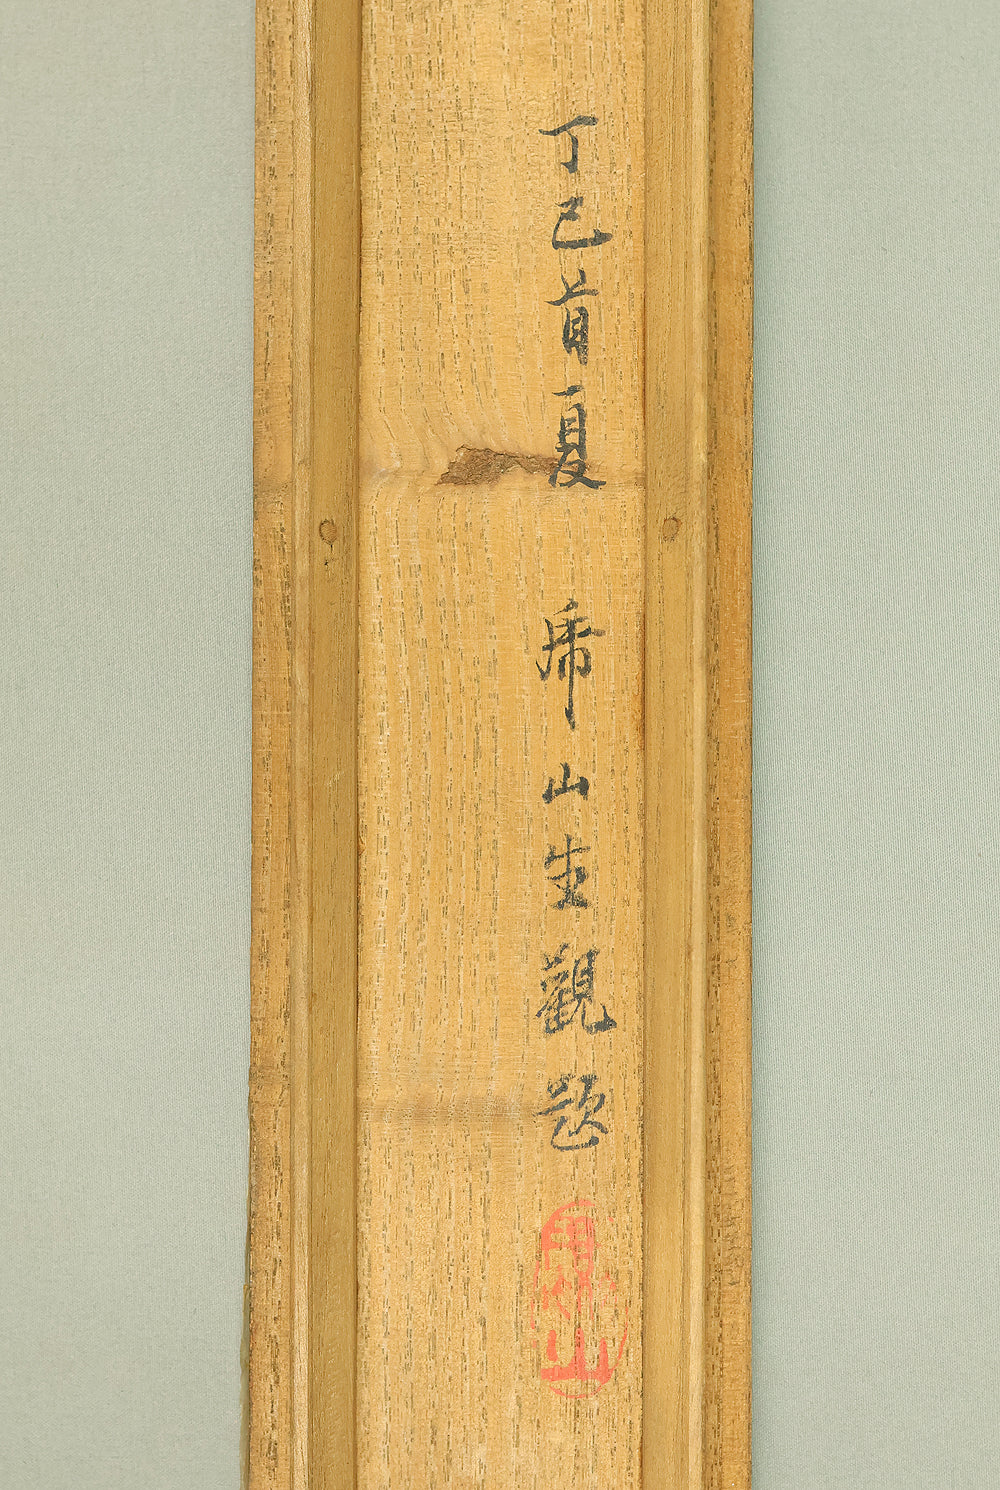 丁巳首夏 乕山生觀題